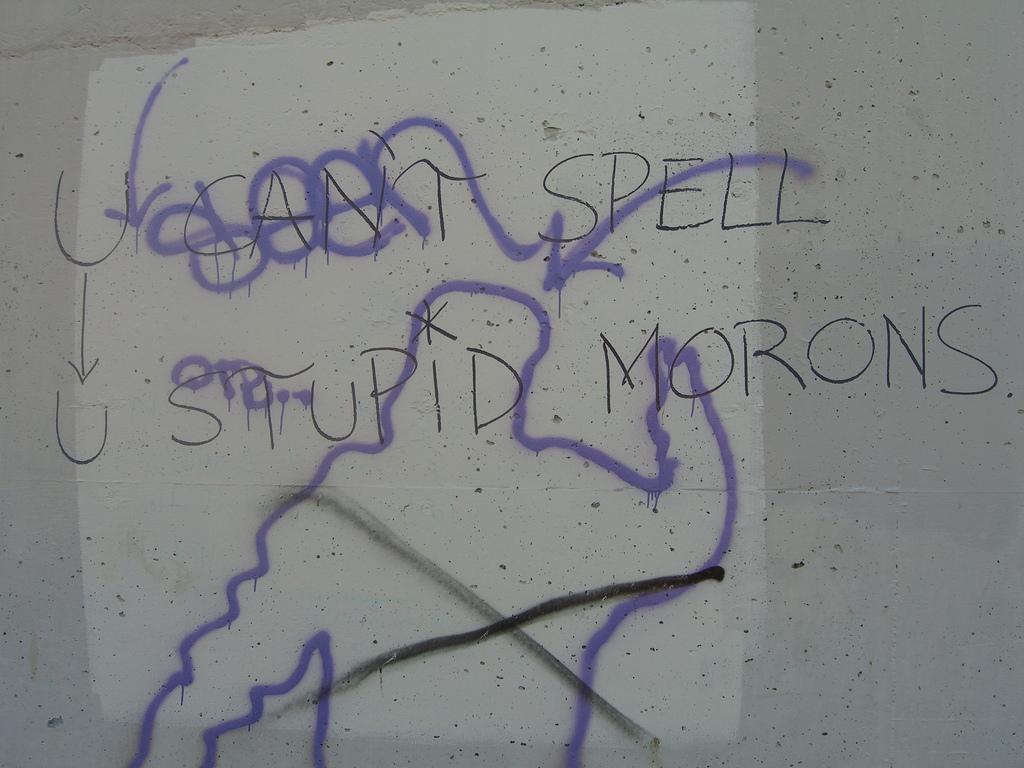 U CAN'T SPELL
U STUPID MORONS.